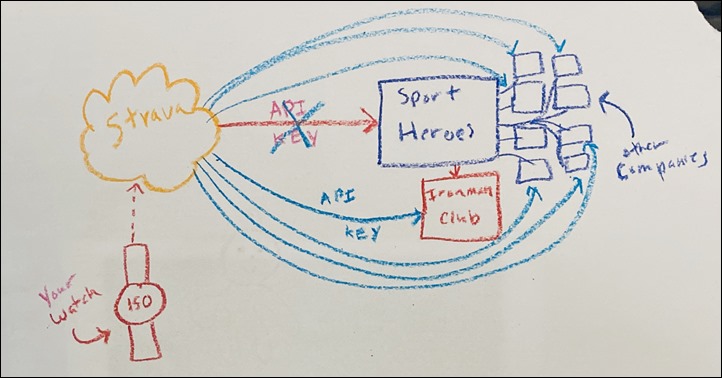 Strava
API
KEY
Sport
Heroes
other
Companies
API
KEY
Ironman
Club
Your
Watch
150